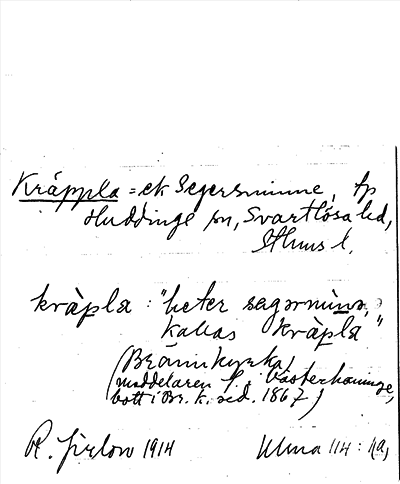 Kräppla = ek Segersminne, tp
Huddinge sn, Svartlösa hd,
Sthms l.
kràpla : "heter segərminə,
kallas kràpla"
(Brännkyrka)
(meddelaren f. i Västerhaninge,
bott i Br. k. sed. 1867)
R. Jirlow 1914 Ulma 114 :